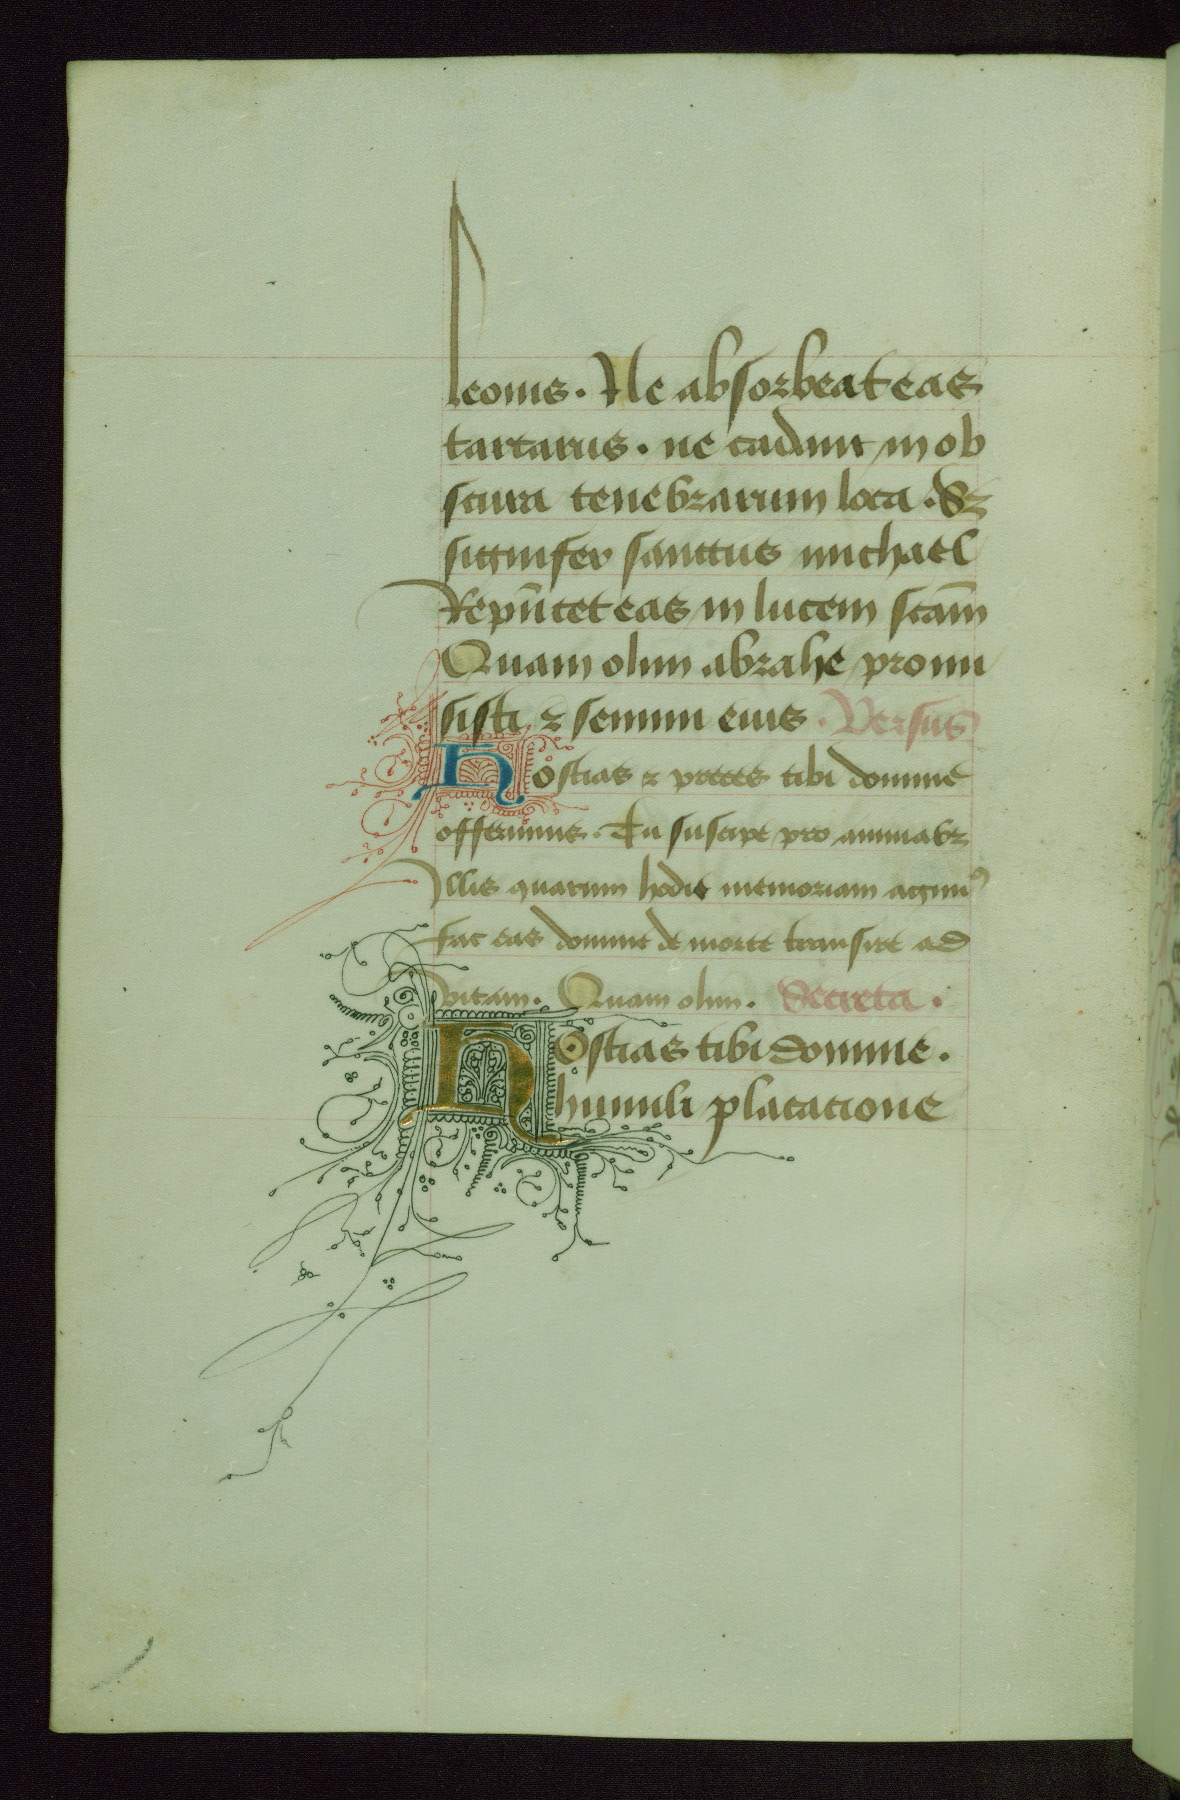 leonis. Ne absorbeat eas
tartarus. ne cadant in ob
scura tenebrarum loca. Sz
signifer sanctus michael
Repñtet eas in lucem scãm
Quam olim abrahe promi
sisti ⁊ semini eius. Versus
Hostias ⁊ preces tibi domine
offerimus. Tu suscipe pro animabꝫ
Illis quarum hodie memoriam agimꝰ
fac eas domine de morte transire ad
vitam. Quam olim. Secreta.
Hostias tibi domine.
humili placacione